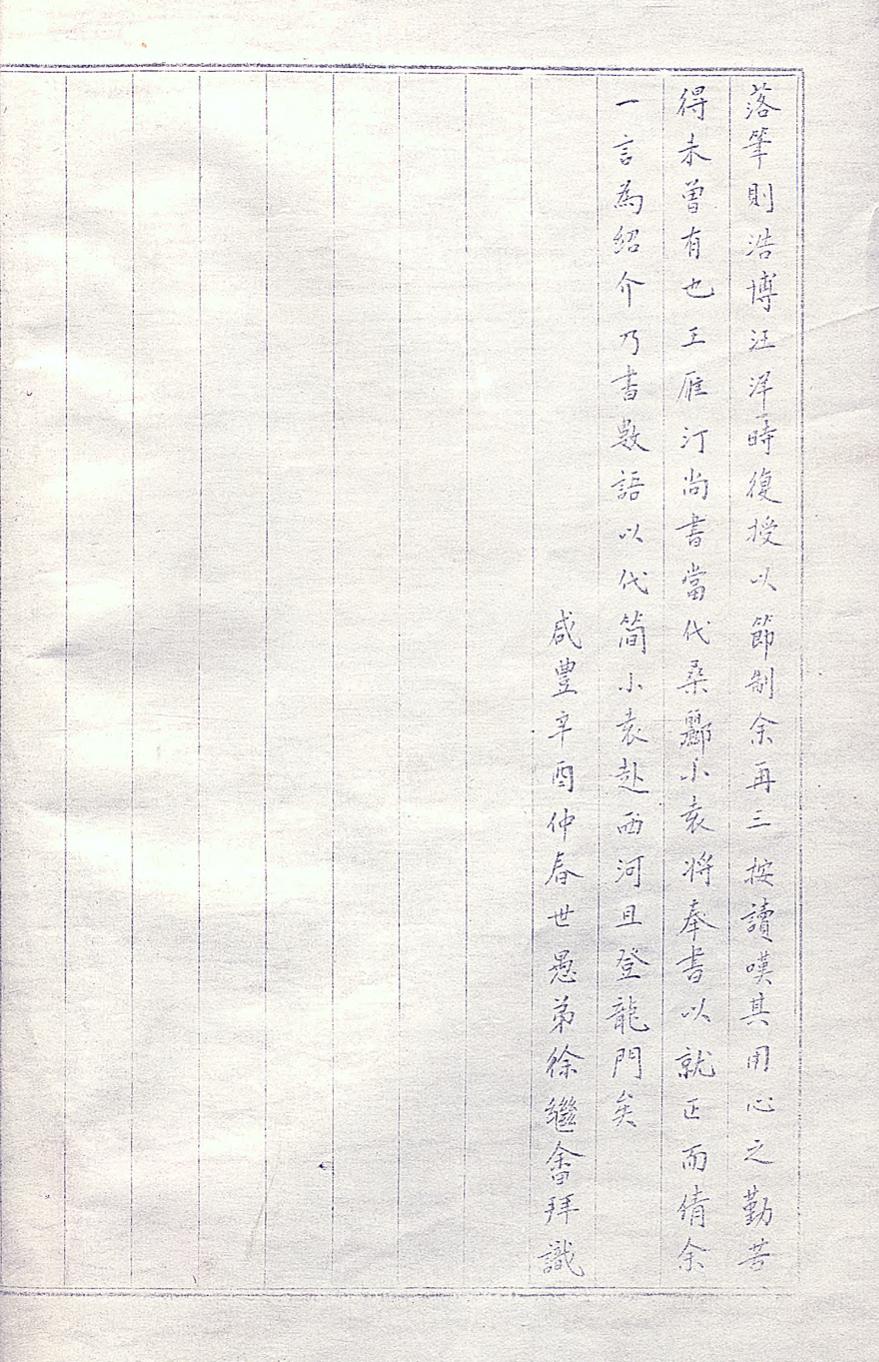 落筆則浩博汪洋時復授以節制余再三按讀嘆其用心之勤苦
得未曾有也王雁汀尚書當代桑酈小袁將奉書以就正而倩余
一言為紹介乃書數語以代简小袁赴西河且登龍門矣
咸豊辛酉仲春世愚弟徐繼畬拜識